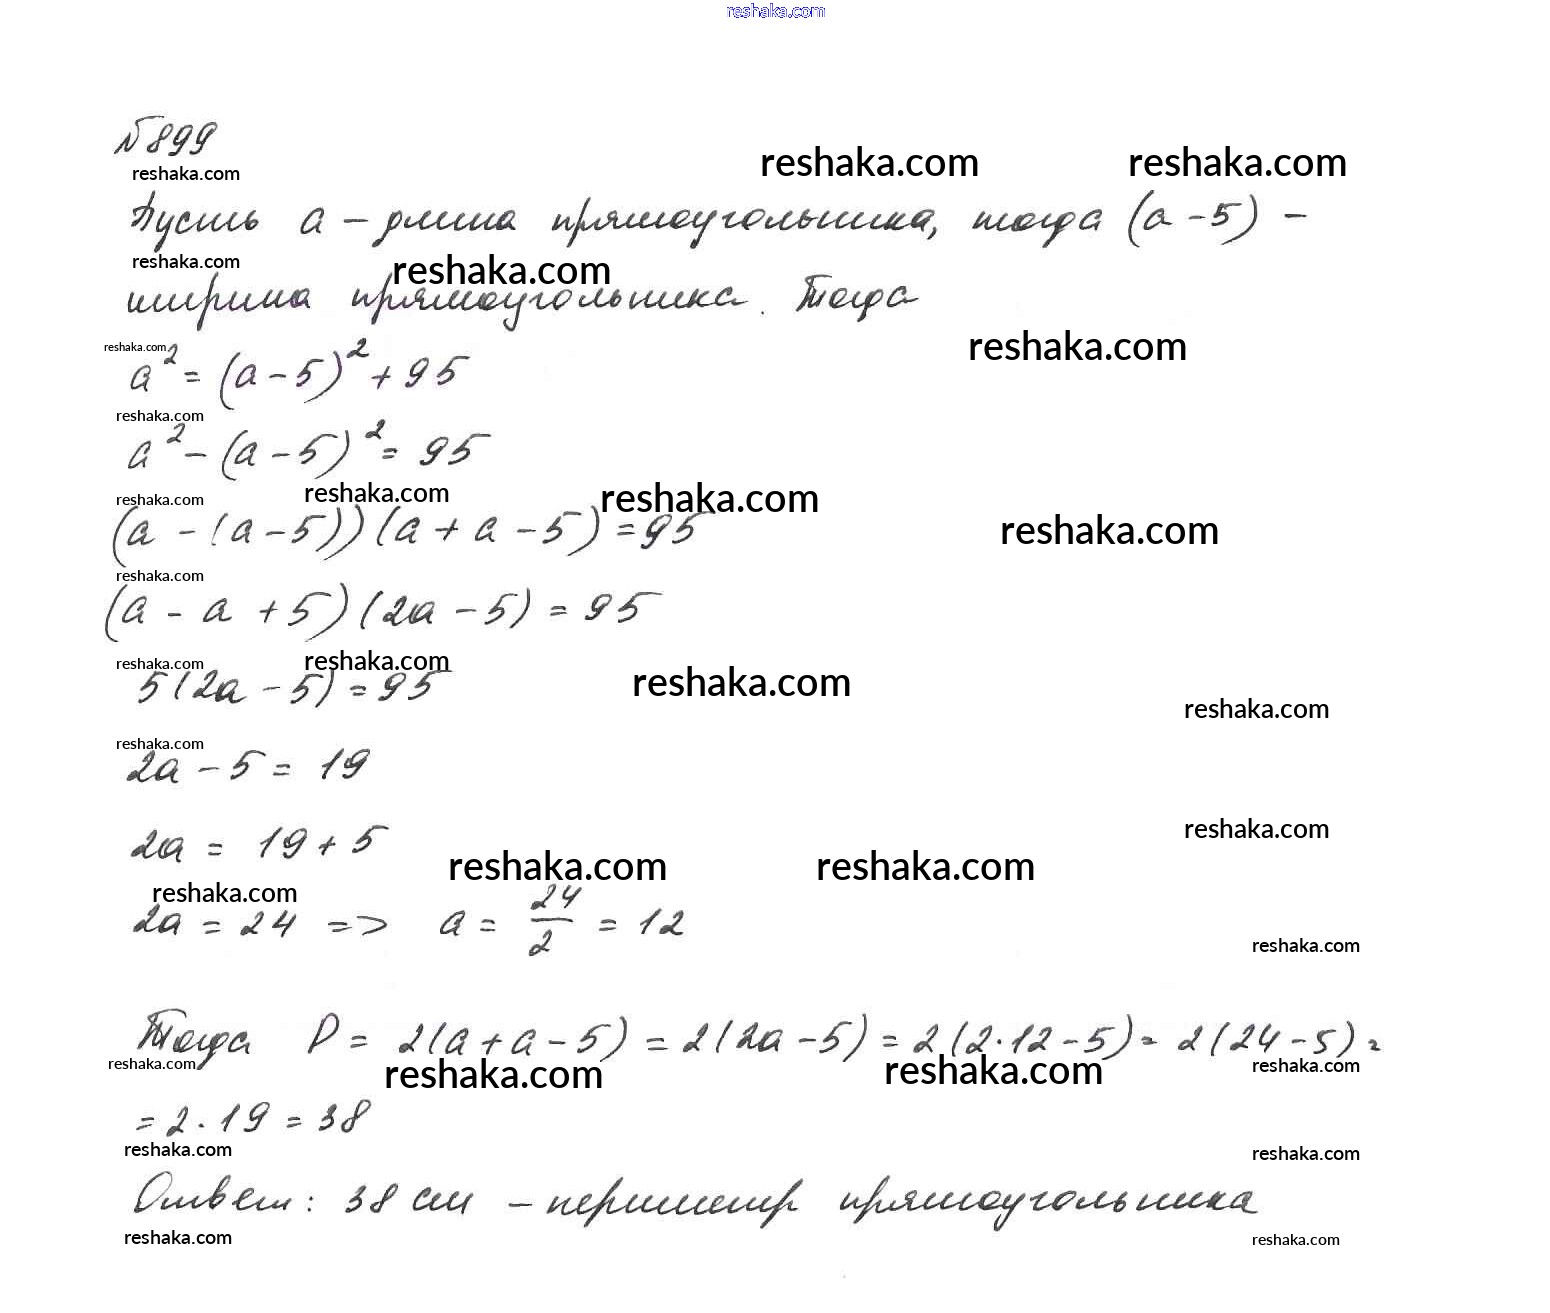 reshaka.com
№899
reshaka.com reshaka.com reshaka.com
Пусть a - длина прямоугольника, тогда (a-5) -
reshaka.com reshaka.com
ширина прямоугольника. Тогда
reshaka.com reshaka.com
a² = (a-5)² + 95
reshaka.com
a² - (a-5)² = 95
reshaka.com reshaka.com reshaka.com reshaka.com
(a - (a-5))(a + a - 5) = 95
reshaka.com
(a - a + 5)(2a - 5) = 95
reshaka.com reshaka.com reshaka.com reshaka.com
5(2a - 5) = 95
reshaka.com
2a - 5 = 19
reshaka.com
2a = 19 + 5
reshaka.com reshaka.com reshaka.com
2a = 24 => a = 24/2 = 12
reshaka.com
Тогда P = 2(a + a - 5) = 2(2a - 5) = 2(2·12 - 5) = 2(24 - 5) =
reshaka.com reshaka.com reshaka.com reshaka.com
= 2·19 = 38
reshaka.com reshaka.com
Ответ: 38 см - периметр прямоугольника
reshaka.com reshaka.com